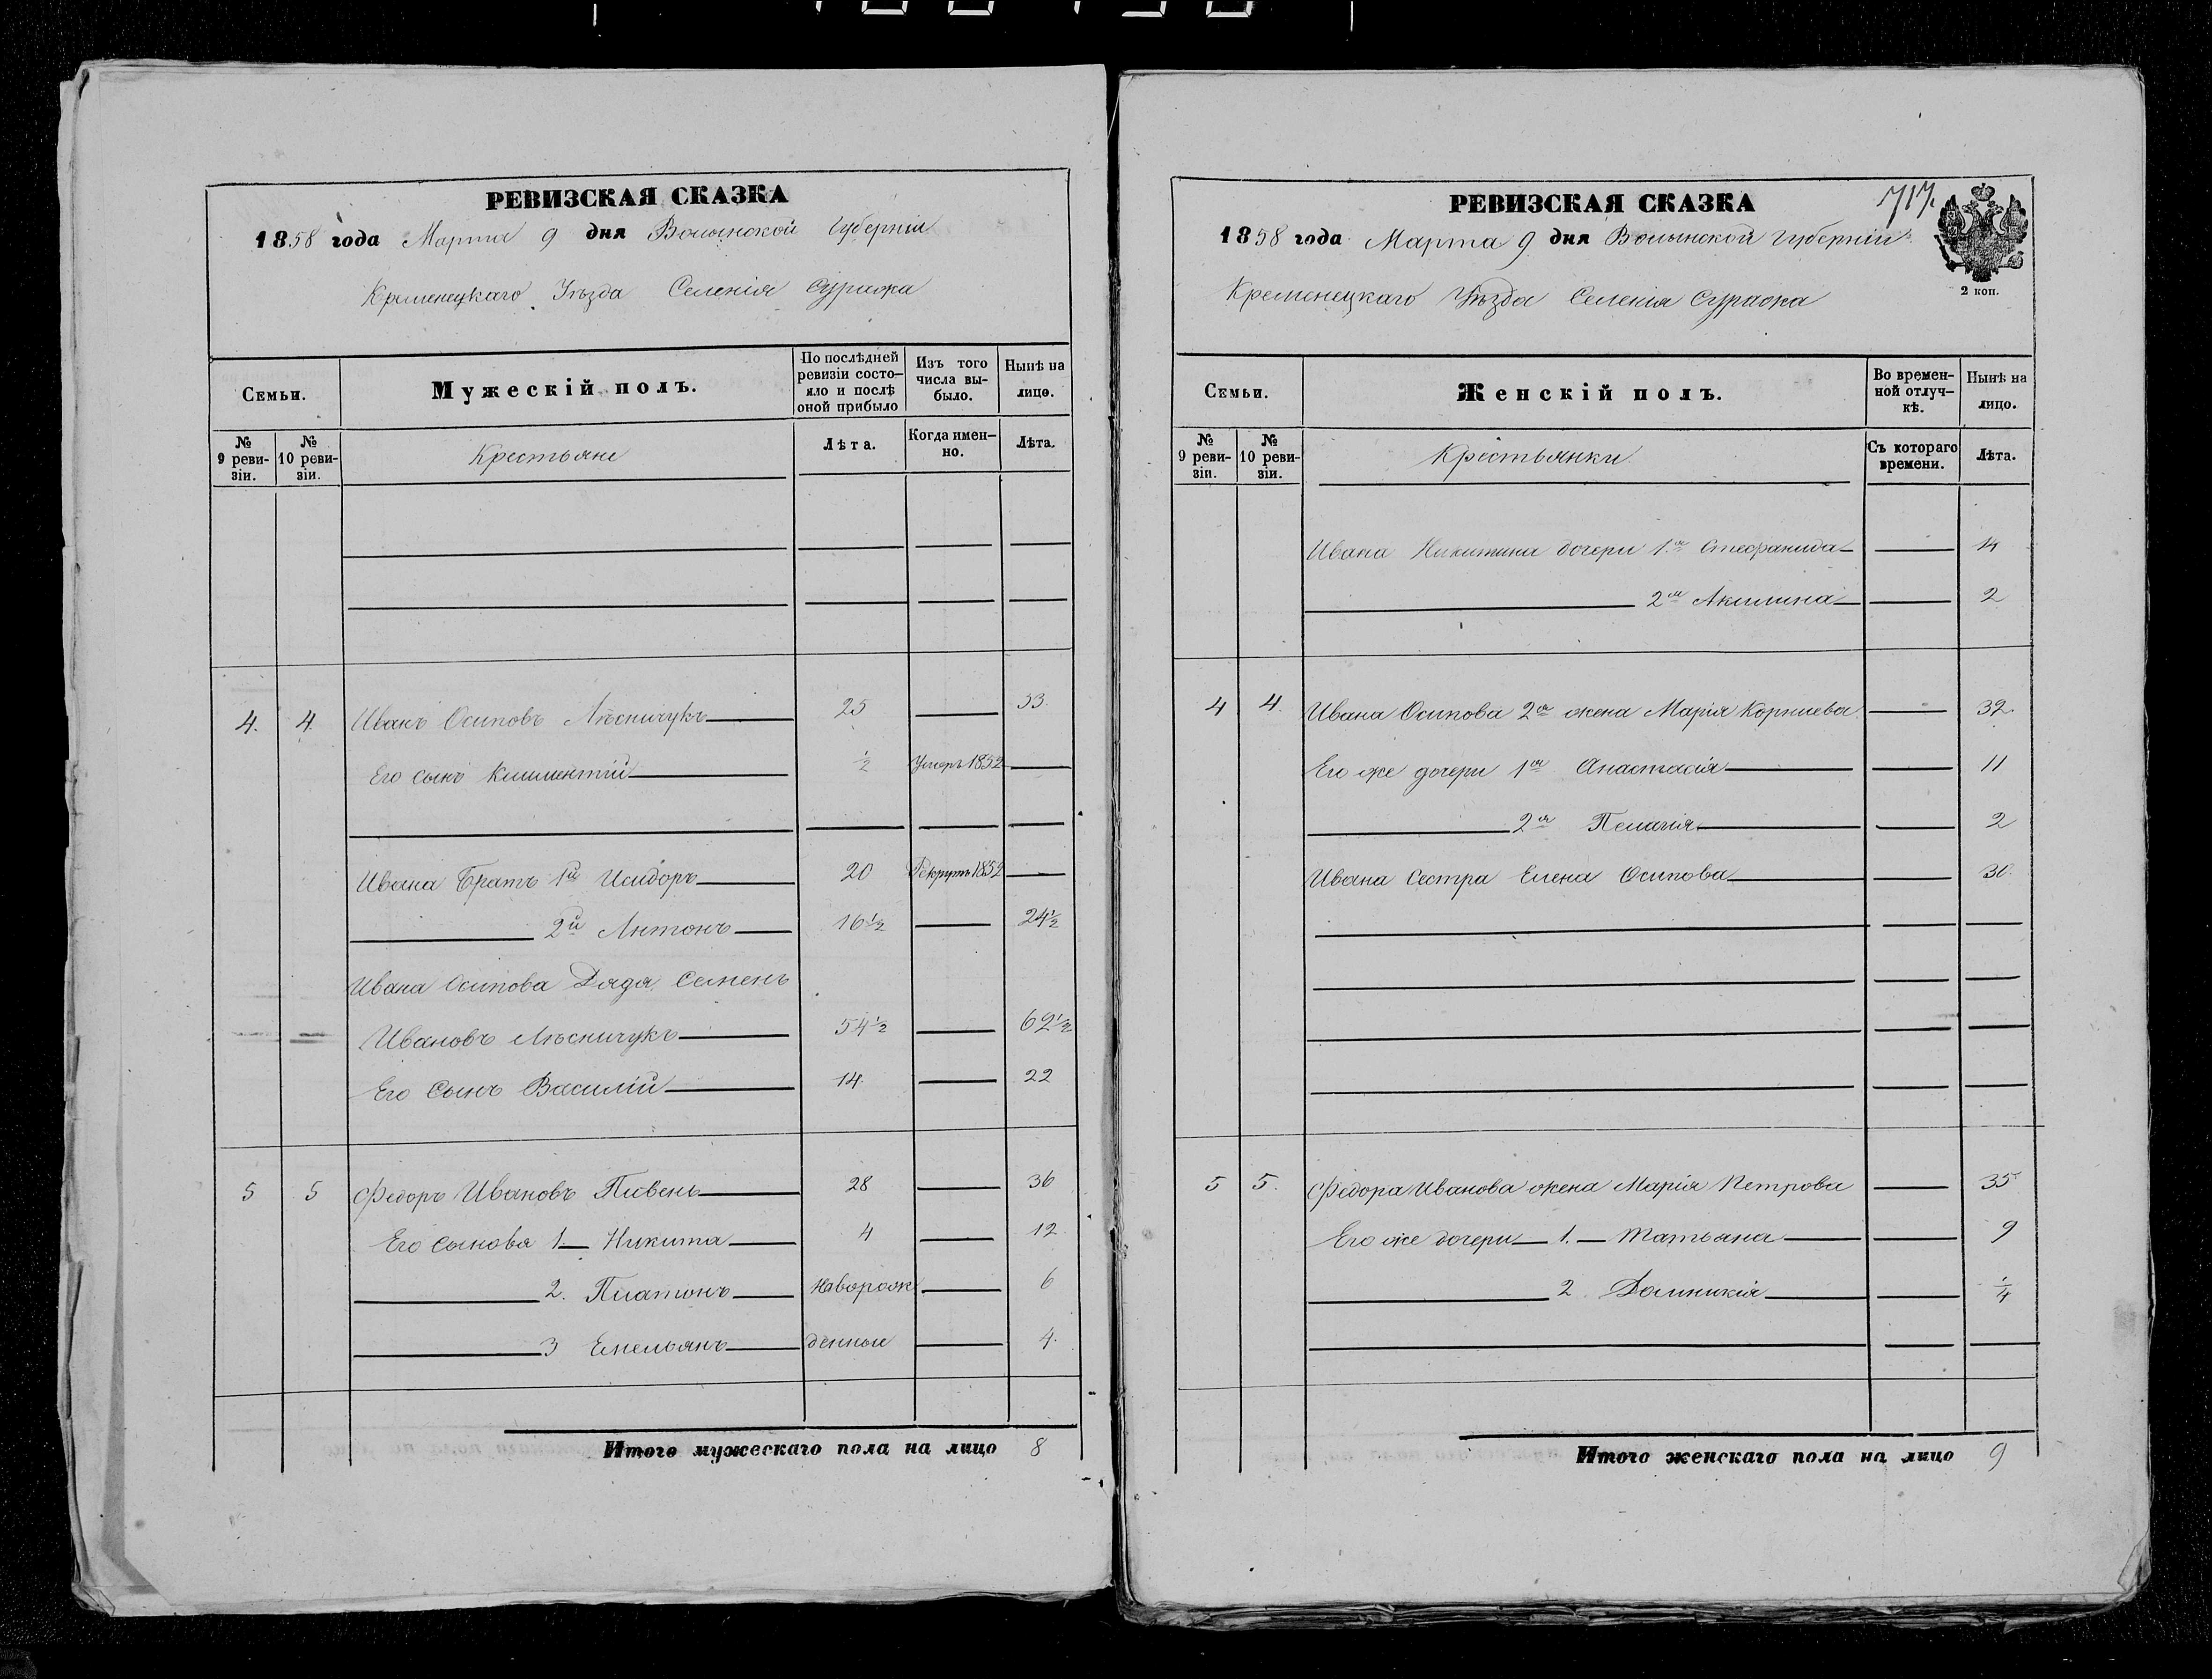 РЕВИЗСКАЯ СКАЗКА
1858 года Марта 9 дня Волынской Губерніи
Кременецкаго Уѣзда Селенія Суража
Семьи.
Мужескій полъ.
По послѣдней ревизіи состо-
яло и послѣ
оной прибыло
Изъ того
числа вы-
было.
Нынѣ на
лицо.
№
9 реви-
зіи.
№
10 реви-
зіи.
Крестьяне
Лѣта.
Когда имен-
но.
Лѣта.
4. 4. Иванъ Осиповъ Лѣсничукъ 25 33
Его сынъ Климентій ½ Умеръ 1852
Ивана Братъ 1й Исидоръ 20 Рекрутъ 1852
2й Антонъ 16½ 24½
Ивана Осипова Дядя Семенъ
Ивановъ Лѣсничукъ 54½ 62½
Его Сынъ Василій 14 22
5 5 Федоръ Ивановъ Пивень 28 36
Его сыновя 1 Никита 4 12
2. Платонъ Новорож 6
3 Емельянъ денные 4.
Итого мужескаго пола на лицо 8
РЕВИЗСКАЯ СКАЗКА
717.
1858 года Марта 9 дня Волынской Губерніи
Кременецкаго Уѣзда Селенія Суража
2 коп.
Семьи.
Женскій полъ.
Во времен-
ной отлуч-
кѣ.
Нынѣ на
лицо.
№
9 реви-
зіи.
№
10 реви-
зіи.
Крестьянки
Съ котораго
времени.
Лѣта.
Ивана Никитина дочери 1я Стефанида 14
2я Акилина 2
4 4. Ивана Осипова 2я жена Марія Корниева 32
Его же дочери 1я Анастасія 11
2я Пелагія 2
Ивана Сестра Елена Осипова
5 5. Федора Иванова жена Марія Петрова 35
Его же дочери 1. Татьяна 9
2 Доминикія ¼
Итого женскаго пола на лицо 9